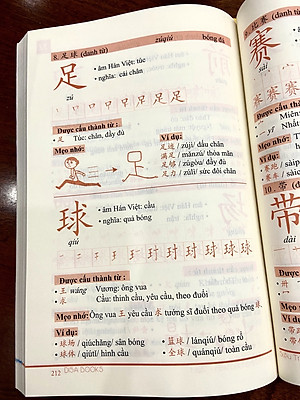 8. 足球 (danh từ) zúqiú bóng đá
足
zú
• âm Hán Việt: túc
• nghĩa: cái chân
Được cấu thành từ :
• 足 Túc: chân, đầy đủ
Mẹo nhớ:
Ví dụ:
足迹 / zújì/ dấu chân
满足 / mǎnzú/ thỏa mãn
足够 / zúgòu/ đầy đủ
足力 / zúlì/ sức đôi chân
球
qiú
• âm Hán Việt: cầu
• nghĩa: quả bóng
Được cấu thành từ :
• 王 wáng Vương: ông vua
• 求 Cầu: thỉnh cầu, yêu cầu, theo đuổi
Mẹo nhớ: Ông vua 王 yêu cầu 求 tướng sĩ đuổi theo quả bóng 球.
Ví dụ:
• 球场/ qiúchǎng/ sân bóng • 篮球/ lánqiú/ bóng rổ
• 球体/ qiútǐ/ hình cầu • 全球/ quánqiú/ toàn cầu
212 BOOKS
赛
sài
带